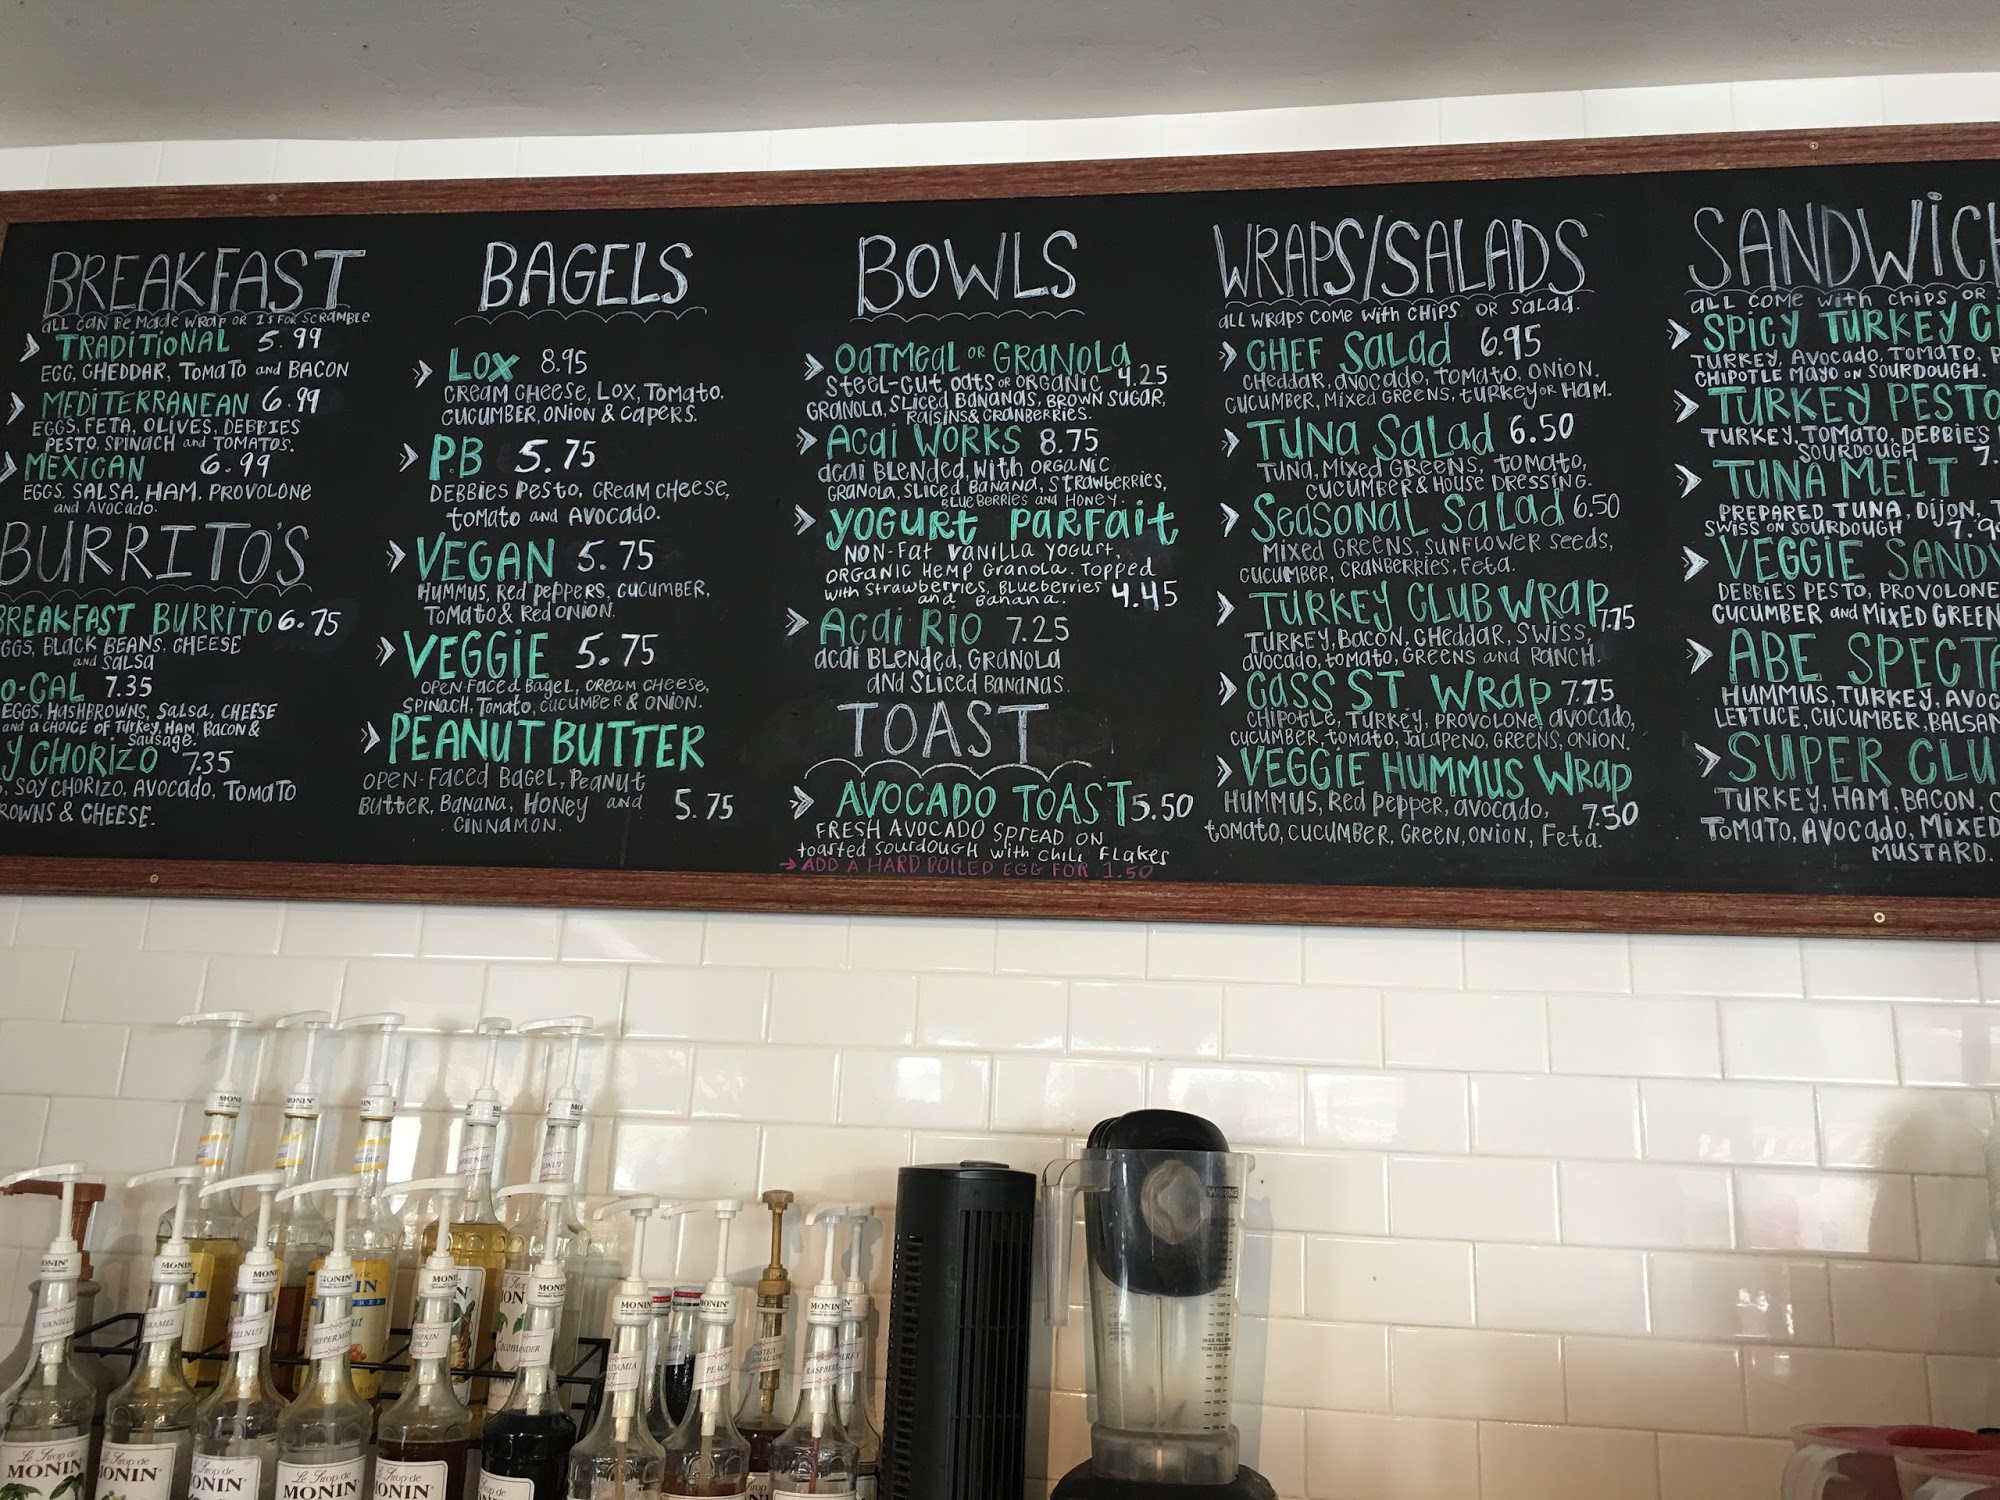 BREAKFAST
ALL CAN BE MADE WRAP OR 1$ FOR SCRAMBLE
TRADITIONAL 5.99
EGG, CHEDDAR, TOMATO and BACON
MEDITERRANEAN 6.99
EGGS, FETA, OLIVES, DEBBIES
PESTO, SPINACH and TOMATOS.
MEXICAN 6.99
EGGS, SALSA, HAM, PROVOLONE
and AVOCADO.
BURRITO'S
BREAKFAST BURRITO 6.75
GGS, BLACK BEANS, CHEESE
and SALSA
O-CAL 7.35
EGGS, HASHBROWNS, SALSA, CHEESE
and a CHOICE OF TURKEY, HAM, BACON &
SAUSAGE.
Y CHORIZO 7.35
, SOY CHORIZO, AVOCADO, TOMATO
ROWNS & CHEESE.
BAGELS
LOX 8.95
CREAM CHEESE, LOX, TOMATO,
CUCUMBER, ONION & CAPERS.
PB 5.75
DEBBIES PESTO, CREAM CHEESE,
TOMATO and AVOCADO.
VEGAN 5.75
HUMMUS, RED PEPPERS, CUCUMBER,
TOMATO & RED ONION.
VEGGIE 5.75
OPEN FACED BAGEL, CREAM CHEESE,
SPINACH, TOMATO, CUCUMBER & ONION.
PEANUT BUTTER
OPEN-FACED BAGEL, PEANUT
BUTTER, BANANA, HONEY and 5.75
CINNAMON.
BOWLS
OATMEAL OR GRANOLA
STEEL-CUT OATS OR ORGANIC 4.25
GRANOLA, SLICED BANANAS, BROWN SUGAR,
RAISINS & CRANBERRIES.
ACAI WORKS 8.75
ACAI BLENDED, WITH ORGANIC
GRANOLA, SLICED BANANA, STRAWBERRIES,
BLUEBERRIES and HONEY.
YOGURT PARFAIT
NON-FAT VANILLA YOGURT,
ORGANIC HEMP GRANOLA. TOPPED
WITH STRAWBERRIES, BLUEBERRIES 4.45
and BANANA.
ACAI RIO 7.25
ACAI BLENDED, GRANOLA
AND SLICED BANANAS.
TOAST
AVOCADO TOAST 5.50
FRESH AVOCADO SPREAD ON
TOASTED SOURDOUGH WITH CHILI FLAKES
→ ADD A HARD BOILED EGG FOR 1.50
WRAPS/SALADS
ALL WRAPS COME WITH CHIPS OR SALAD.
CHEF SALAD 6.95
CHEDDAR, AVOCADO, TOMATO, ONION,
CUCUMBER, MIXED GREENS, TURKEY OR HAM.
TUNA SALAD 6.50
TUNA, MIXED GREENS, TOMATO,
CUCUMBER & HOUSE DRESSING.
SEASONAL SALAD 6.50
MIXED GREENS, SUNFLOWER SEEDS,
CUCUMBER, CRANBERRIES, FETA.
TURKEY CLUB WRAP 7.75
TURKEY, BACON, CHEDDAR, SWISS,
AVOCADO, TOMATO, GREENS and RANCH.
GASS ST WRAP 7.75
CHIPOTLE, TURKEY, PROVOLONE, AVOCADO,
CUCUMBER, TOMATO, JALAPENO, GREENS, ONION.
VEGGIE HUMMUS WRAP
HUMMUS, RED PEPPER, AVOCADO, 7.50
TOMATO, CUCUMBER, GREEN, ONION, FETA.
SANDWICH
ALL COME WITH CHIPS OR
SPICY TURKEY C
TURKEY, AVOCADO, TOMATO, P
CHIPOTLE MAYO ON SOURDOUGH.
TURKEY PESTO
TURKEY, TOMATO, DEBBIE'S
SOURDOUGH 7.
TUNA MELT
PREPARED TUNA, DIJON, T
SWISS ON SOURDOUGH 7.9
VEGGIE SAND
DEBBIES PESTO, PROVOLONE
CUCUMBER and MIXED GREEN
ABE SPECTA
HUMMUS, TURKEY, AVOC
LETTUCE, CUCUMBER, BALSAM
SUPER CLU
TURKEY, HAM, BACON, C
TOMATO, AVOCADO, MIXED
MUSTARD.
MONIN
MONIN
MONIN
MONIN
VANILLA
PEPPERMIN
PEACH
RASPBERR
WARING
Le Sirop de
MONIN
Le Sirop de
MONIN
Le Sirop de
MONIN